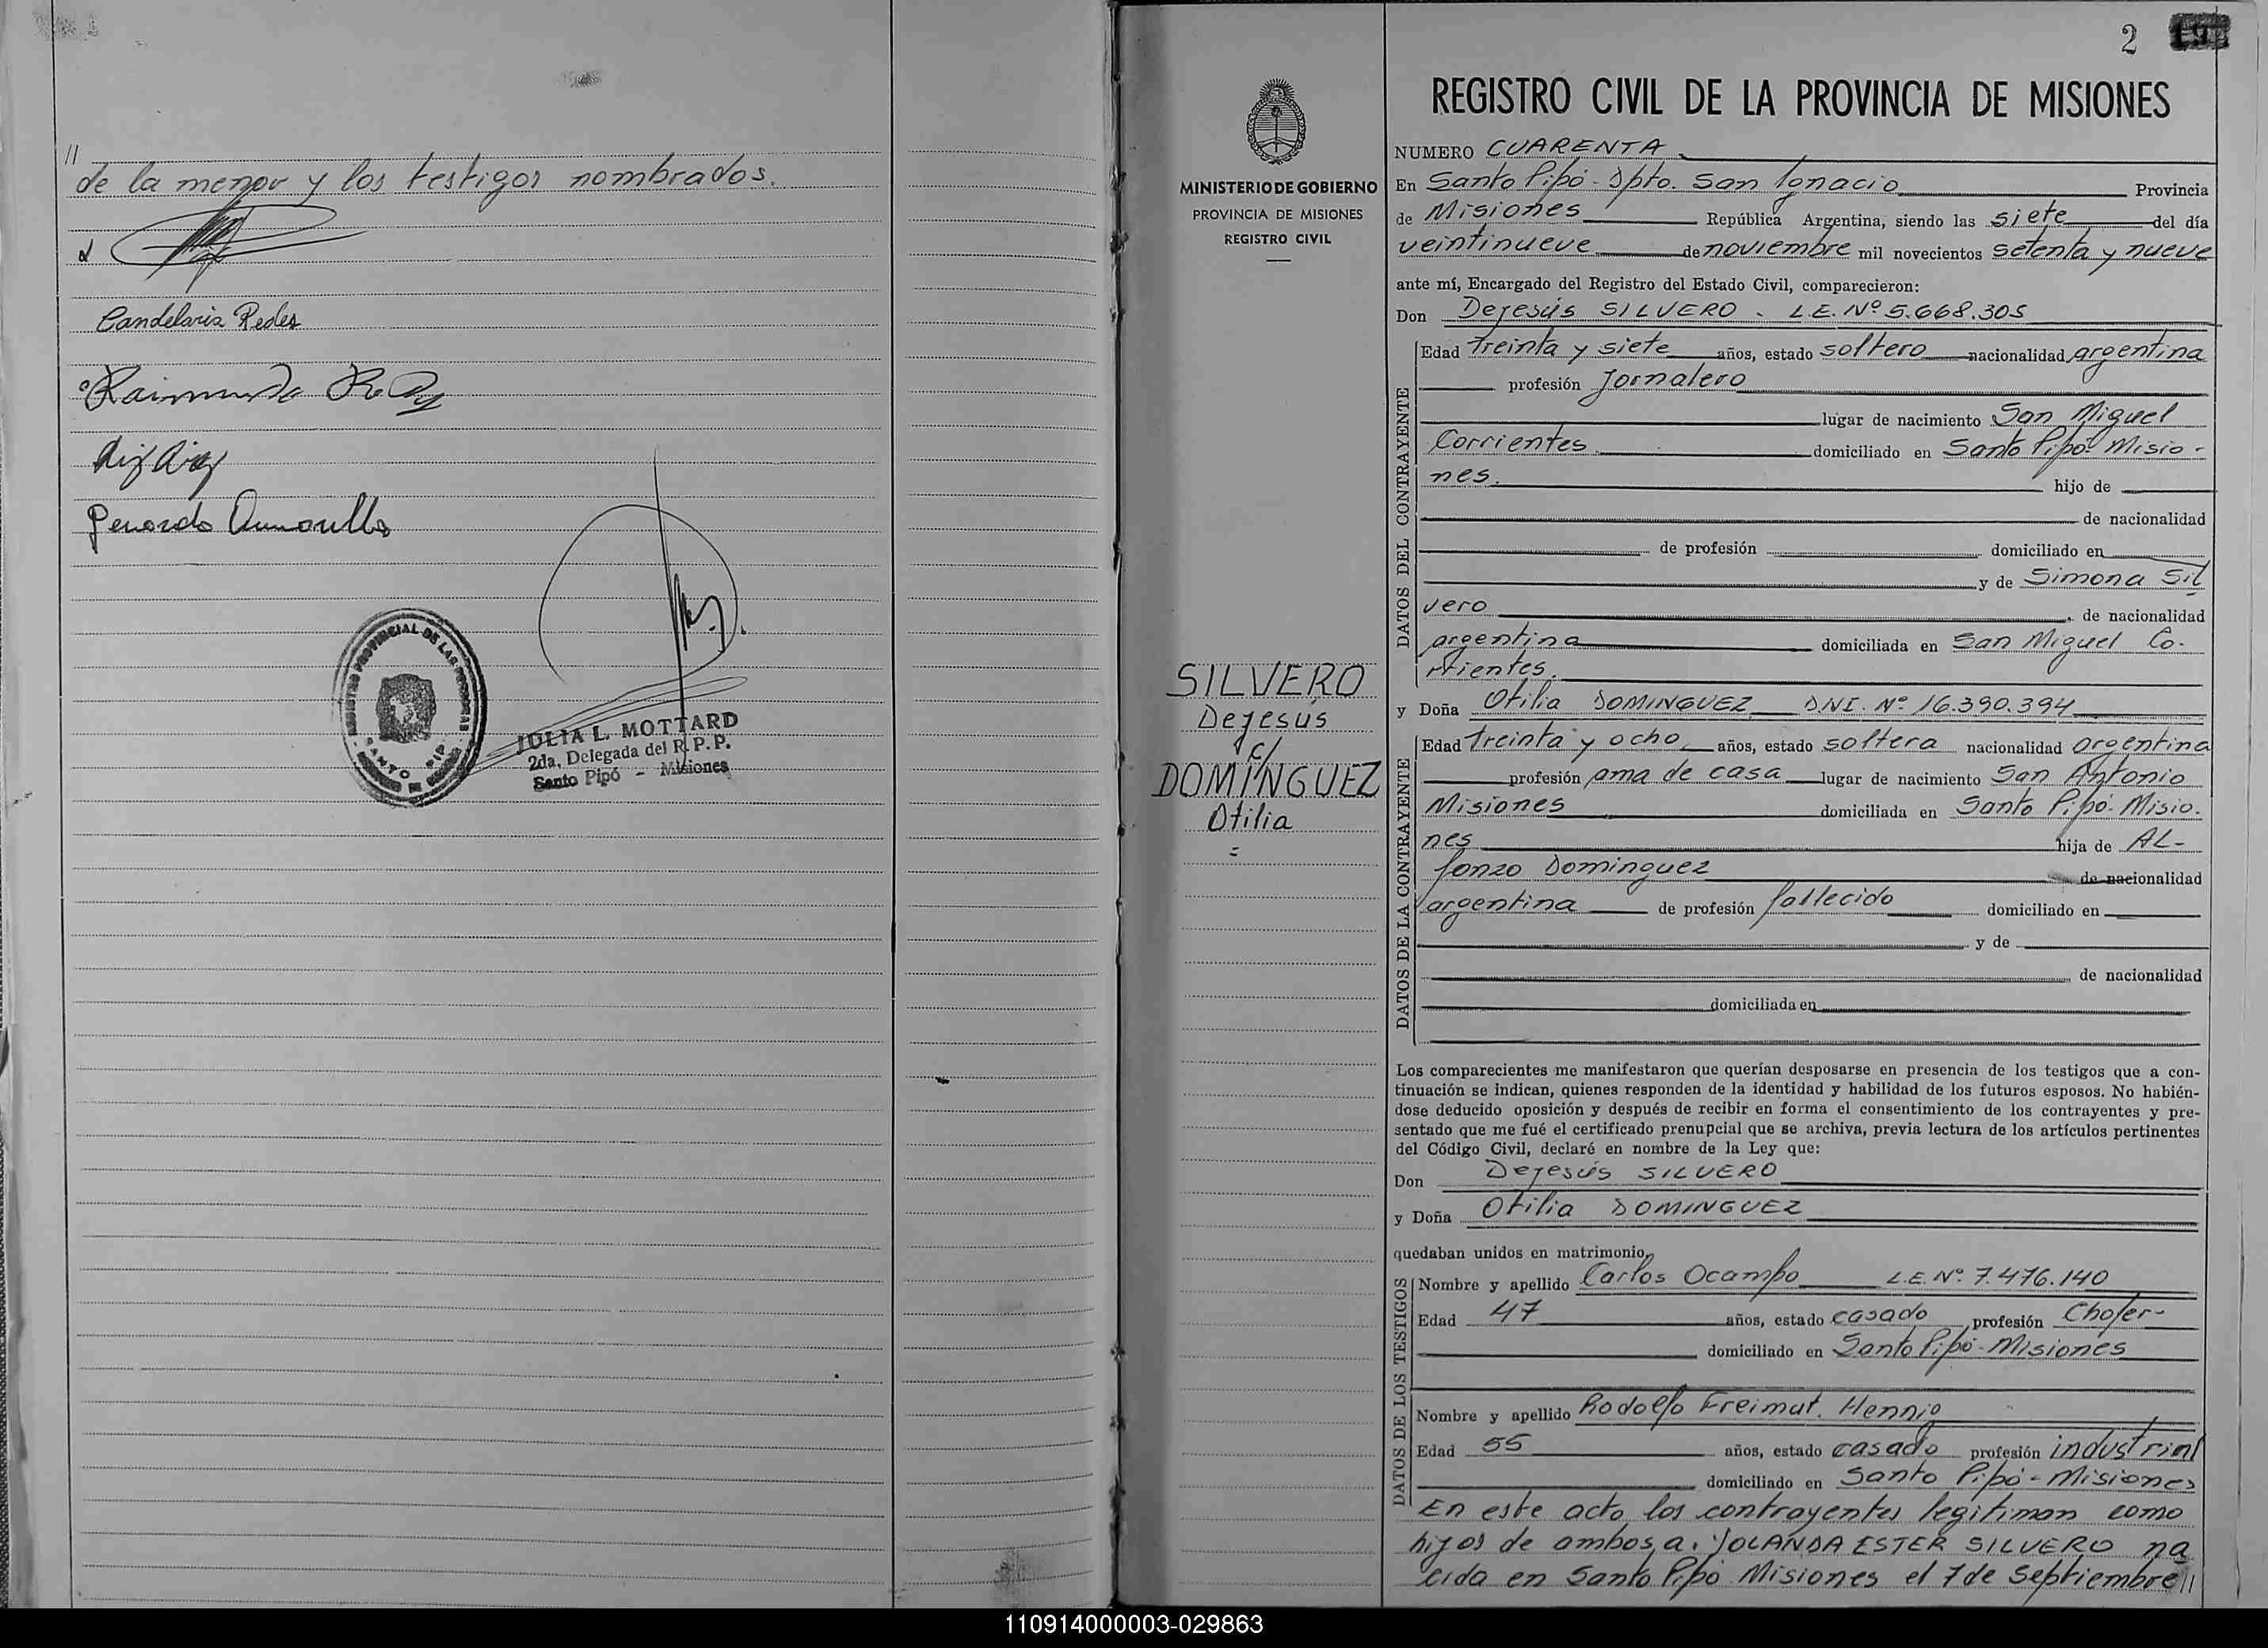 //
de la menor y los testigos nombrados.
Candelaria Redes
JULIA L. MOTTARD
2da. Delegada del R. P. P.
Santo Pipó - Misiones
MINISTERIO DE GOBIERNO
PROVINCIA DE MISIONES
REGISTRO CIVIL
SILVERO
Dejesús
c/
DOMINGUEZ
Otilia
=
2
REGISTRO CIVIL DE LA PROVINCIA DE MISIONES
NUMERO CUARENTA
En Santo Pipó - Dpto. San Ignacio Provincia
de Misiones República Argentina, siendo las siete del día
veintinueve de noviembre mil novecientos setenta y nueve
ante mí, Encargado del Registro del Estado Civil, comparecieron:
Don Dejesús SILVERO - L.E. Nº 5.668.305
DATOS DEL CONTRAYENTE
Edad treinta y siete años, estado soltero nacionalidad argentina
profesión Jornalero
lugar de nacimiento San Miguel
Corrientes domiciliado en Santo Pipó - Misio-
nes. hijo de
de nacionalidad
de profesión domiciliado en
y de Simona Sil
vero de nacionalidad
argentina domiciliada en San Miguel Co-
rrientes.
y Doña Otilia DOMINGUEZ DNI. Nº 16.390.394
DATOS DE LA CONTRAYENTE
Edad treinta y ocho años, estado soltera nacionalidad argentina
profesión ama de casa lugar de nacimiento San Antonio
Misiones domiciliada en Santo Pipó. Misio.
nes hija de AL-
fonzo Dominguez de nacionalidad
argentina de profesión fallecido domiciliado en
y de
de nacionalidad
domiciliada en
Los comparecientes me manifestaron que querían desposarse en presencia de los testigos que a con-
tinuación se indican, quienes responden de la identidad y habilidad de los futuros esposos. No habién-
dose deducido oposición y después de recibir en forma el consentimiento de los contrayentes y pre-
sentado que me fué el certificado prenupcial que se archiva, previa lectura de los artículos pertinentes
del Código Civil, declaré en nombre de la Ley que:
Don Dejesús SILVERO
y Doña Otilia DOMINGUEZ
quedaban unidos en matrimonio,
DATOS DE LOS TESTIGOS
Nombre y apellido Carlos Ocampo L.E. Nº. 7.476.140
Edad 47 años, estado casado profesión Chofer-
domiciliado en Santo Pipó - Misiones
Nombre y apellido Rodolfo Freimut. Hennig
Edad 55 años, estado casado profesión industrial
domiciliado en Santo Pipó - Misiones
En este acto los contrayentes legitiman como
hijos de ambos, a: YOLANDA ESTER SILVERO na
cida en Santo Pipó Misiones el 7 de Septiembre //
110914000003-029863